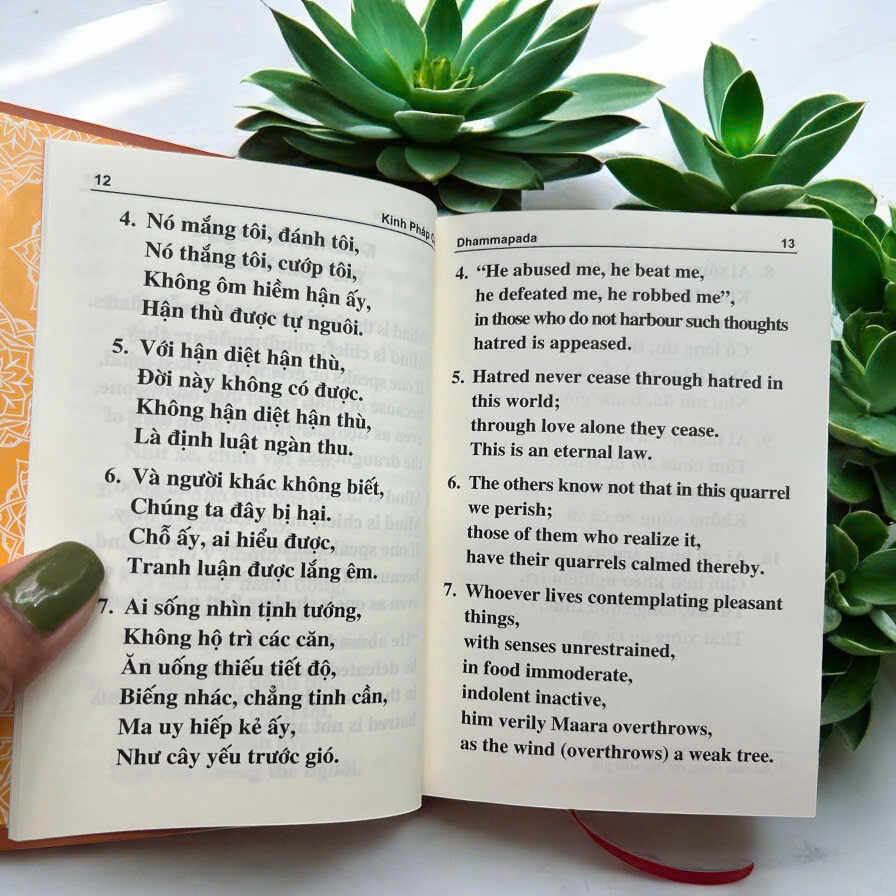 12
Kinh Pháp
4. Nó mắng tôi, đánh tôi,
Nó thắng tôi, cướp tôi,
Không ôm hiềm hận ấy,
Hận thù được tự nguôi.
5. Với hận diệt hận thù,
Đời này không có được.
Không hận diệt hận thù,
Là định luật ngàn thu.
6. Và người khác không biết,
Chúng ta đây bị hại.
Chỗ ấy, ai hiểu được,
Tranh luận được lắng êm.
7. Ai sống nhìn tịnh tướng,
Không hộ trì các căn,
Ăn uống thiếu tiết độ,
Biếng nhác, chẳng tinh cần,
Ma uy hiếp kẻ ấy,
Như cây yếu trước gió.
Dhammapada
13
4. “He abused me, he beat me,
he defeated me, he robbed me”,
in those who do not harbour such thoughts
hatred is appeased.
5. Hatred never cease through hatred in
this world;
through love alone they cease.
This is an eternal law.
6. The others know not that in this quarrel
we perish;
those of them who realize it,
have their quarrels calmed thereby.
7. Whoever lives contemplating pleasant
things,
with senses unrestrained,
in food immoderate,
indolent inactive,
him verily Maara overthrows,
as the wind (overthrows) a weak tree.